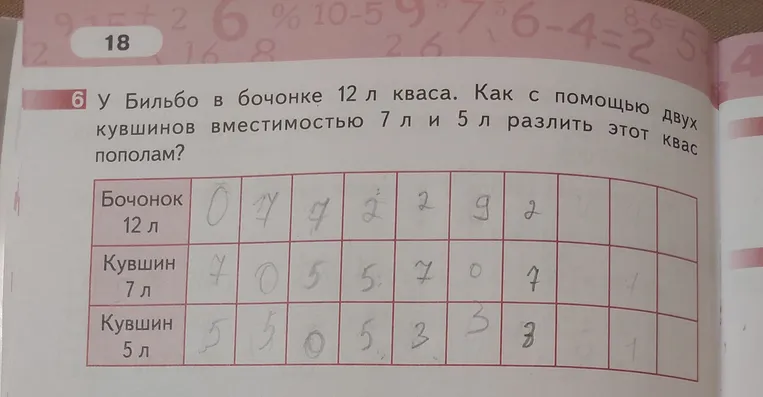 18
6 У Бильбо в бочонке 12 л кваса. Как с помощью двух
кувшинов вместимостью 7 л и 5 л разлить этот квас
пополам?
Бочонок 12 л 0 7 7 2 2 9 2
Кувшин 7 л 7 0 5 5 7 0 7
Кувшин 5 л 5 5 0 5 3 3 3